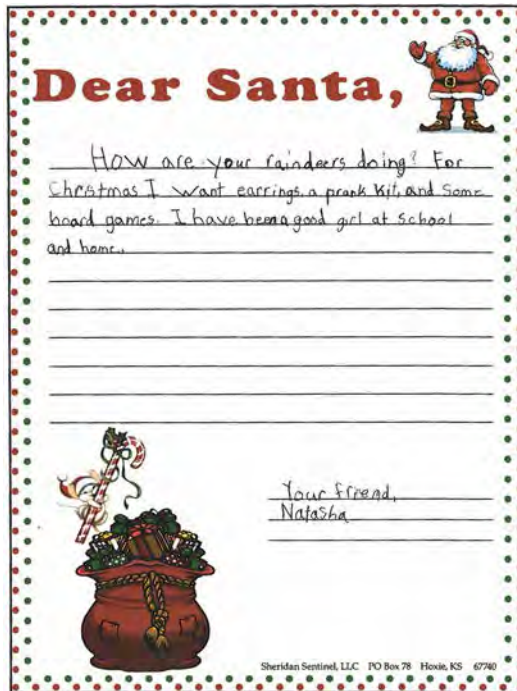 Dear Santa,
How are your raindeers doing? For
Christmas I want earrings, a prank kit, and some
board games. I have been a good girl at school
and home.
Your friend,
Natasha
Sheridan Sentinel, LLC PO Box 78 Hoxie, KS 67740